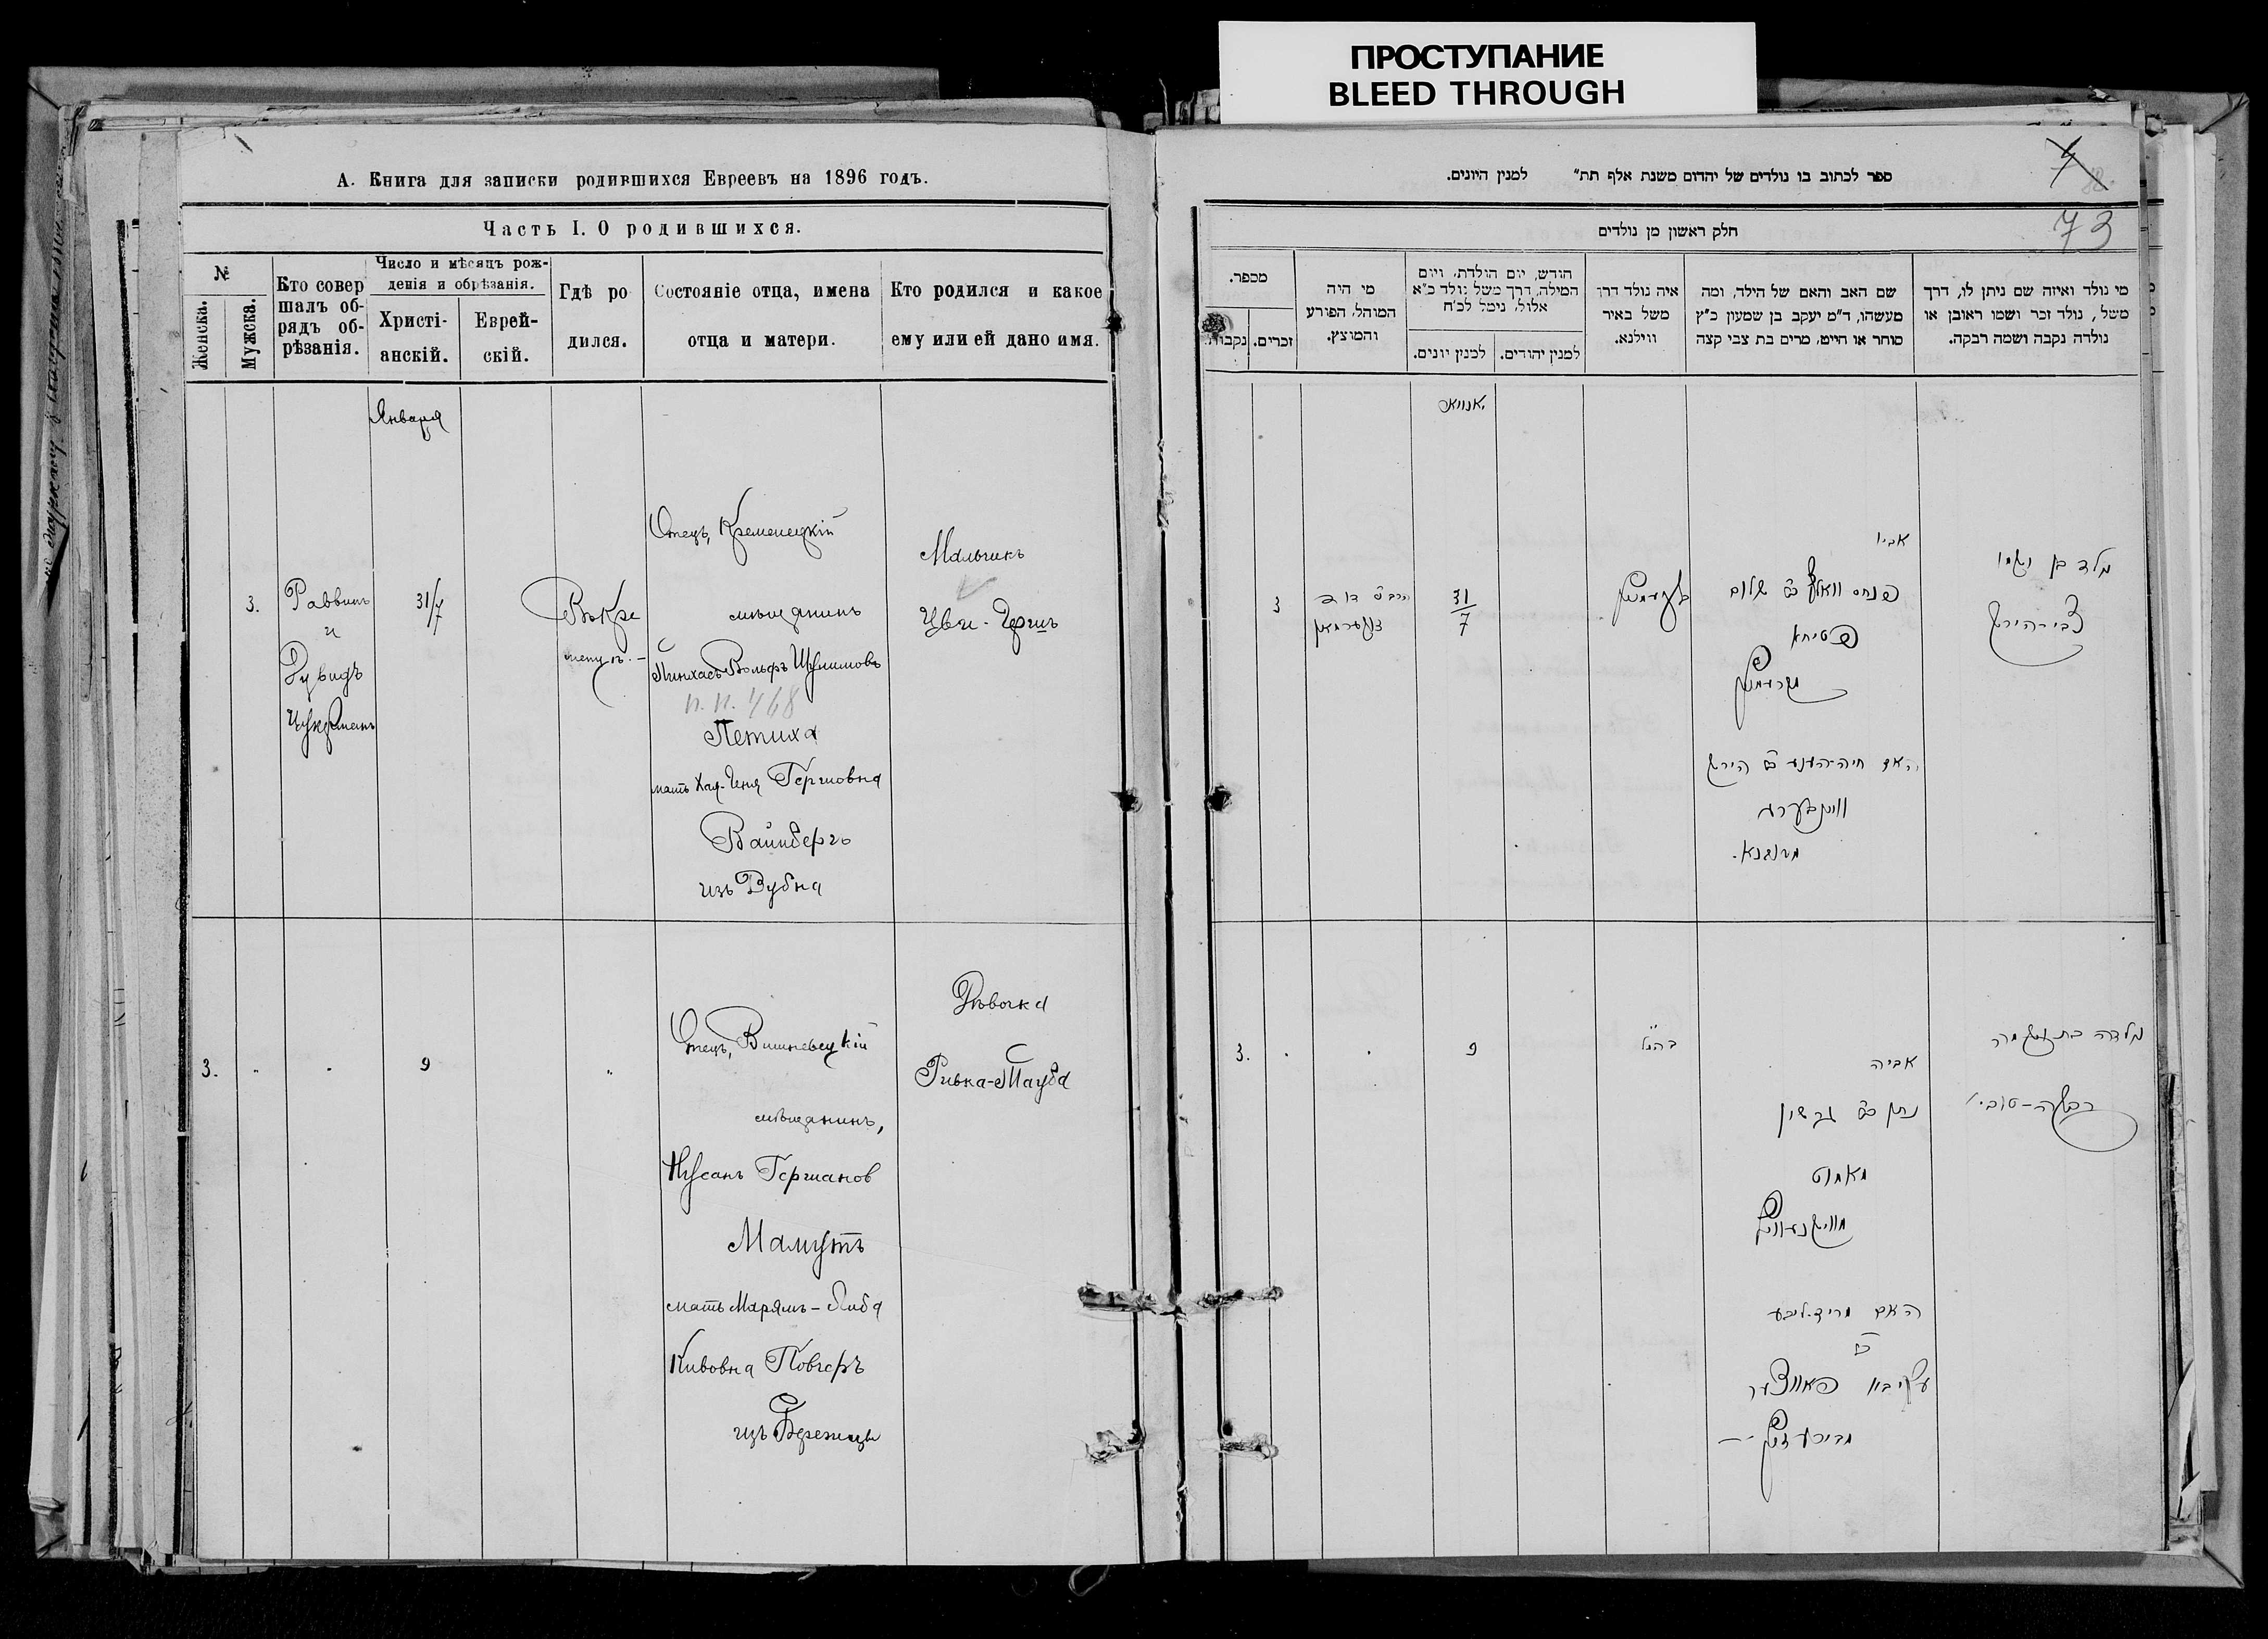 ПРОСТУПАНИЕ
BLEED THROUGH
А. Книга для записки родившихся Евреевъ на 1896 годъ.
Часть I. О родившихся.
№
Женска.
Мужска.
Кто совер
шалъ об-
рядъ об-
рѣзанія.
Число и мѣсяцъ рож-
денія и обрѣзанія.
Христі-
анскій.
Еврей-
скій.
Гдѣ ро
дился.
Состояніе отца, имена
отца и матери.
Кто родился и какое
ему или ей дано имя.
Января
3.
Раввинъ
и
Дувидъ
Цукерманъ
31/7
Въ Кре
менцѣ.
Отецъ, Кременецкій
мѣщанинъ
Пинхасъ Вольфъ Шулимовъ
п. п. 468
Петиха
мать Хая-Геня Гершовна
Вайнбергъ
изъ Дубна
Мальчикъ
Цви-Гершъ
3.
9
Отецъ, Вишневецкій
мѣщанинъ,
Нусанъ Гершанов
Мамутъ
мать Марямъ-Либа
Кивовна Повчеръ
изъ Бережецъ
Дѣвочка
Ривка-Тауба
ספר לכתוב בו נולדים של יהדום משנת אלף תת״ למנין היונים.
4
88
73
חלק ראשון מן נולדים
מספר.
נקבות.
זכרים.
מי היה
המוהל, הפורע
והמוצץ.
הודש, יום הולדת, ויום
המילה, דרך משל נולד כ״א
אלול, נימל לכ״ח
למנין יונים.
למנין יהודים.
איה נולד דרך
משל באיר
ווילנא.
שם האב והאם של הילד, ומה
מעשהו, ד״מ יעקב בן שמעון כ״ץ
סוחר או חייט, מרים בת צבי קצה
מי נולד ואיזה שם ניתן לו, דרך
משל, נולד זכר ושמו ראובן או
נולדה נקבה ושמה רבקה.
3
צוקערמאן
31/7
אביו
פנחס וואלף ב״ שלום
פטיחא
האם חיה-הענע ב״ הירש
וויינבערג
מדובנא.
נולד בן ושמו
צבי-הירש
3.
9
אביה
נתן ב״ גרשון
מאמוט
האם מרים-ליבע
נולדה בת ושמה
רבקה-טובי